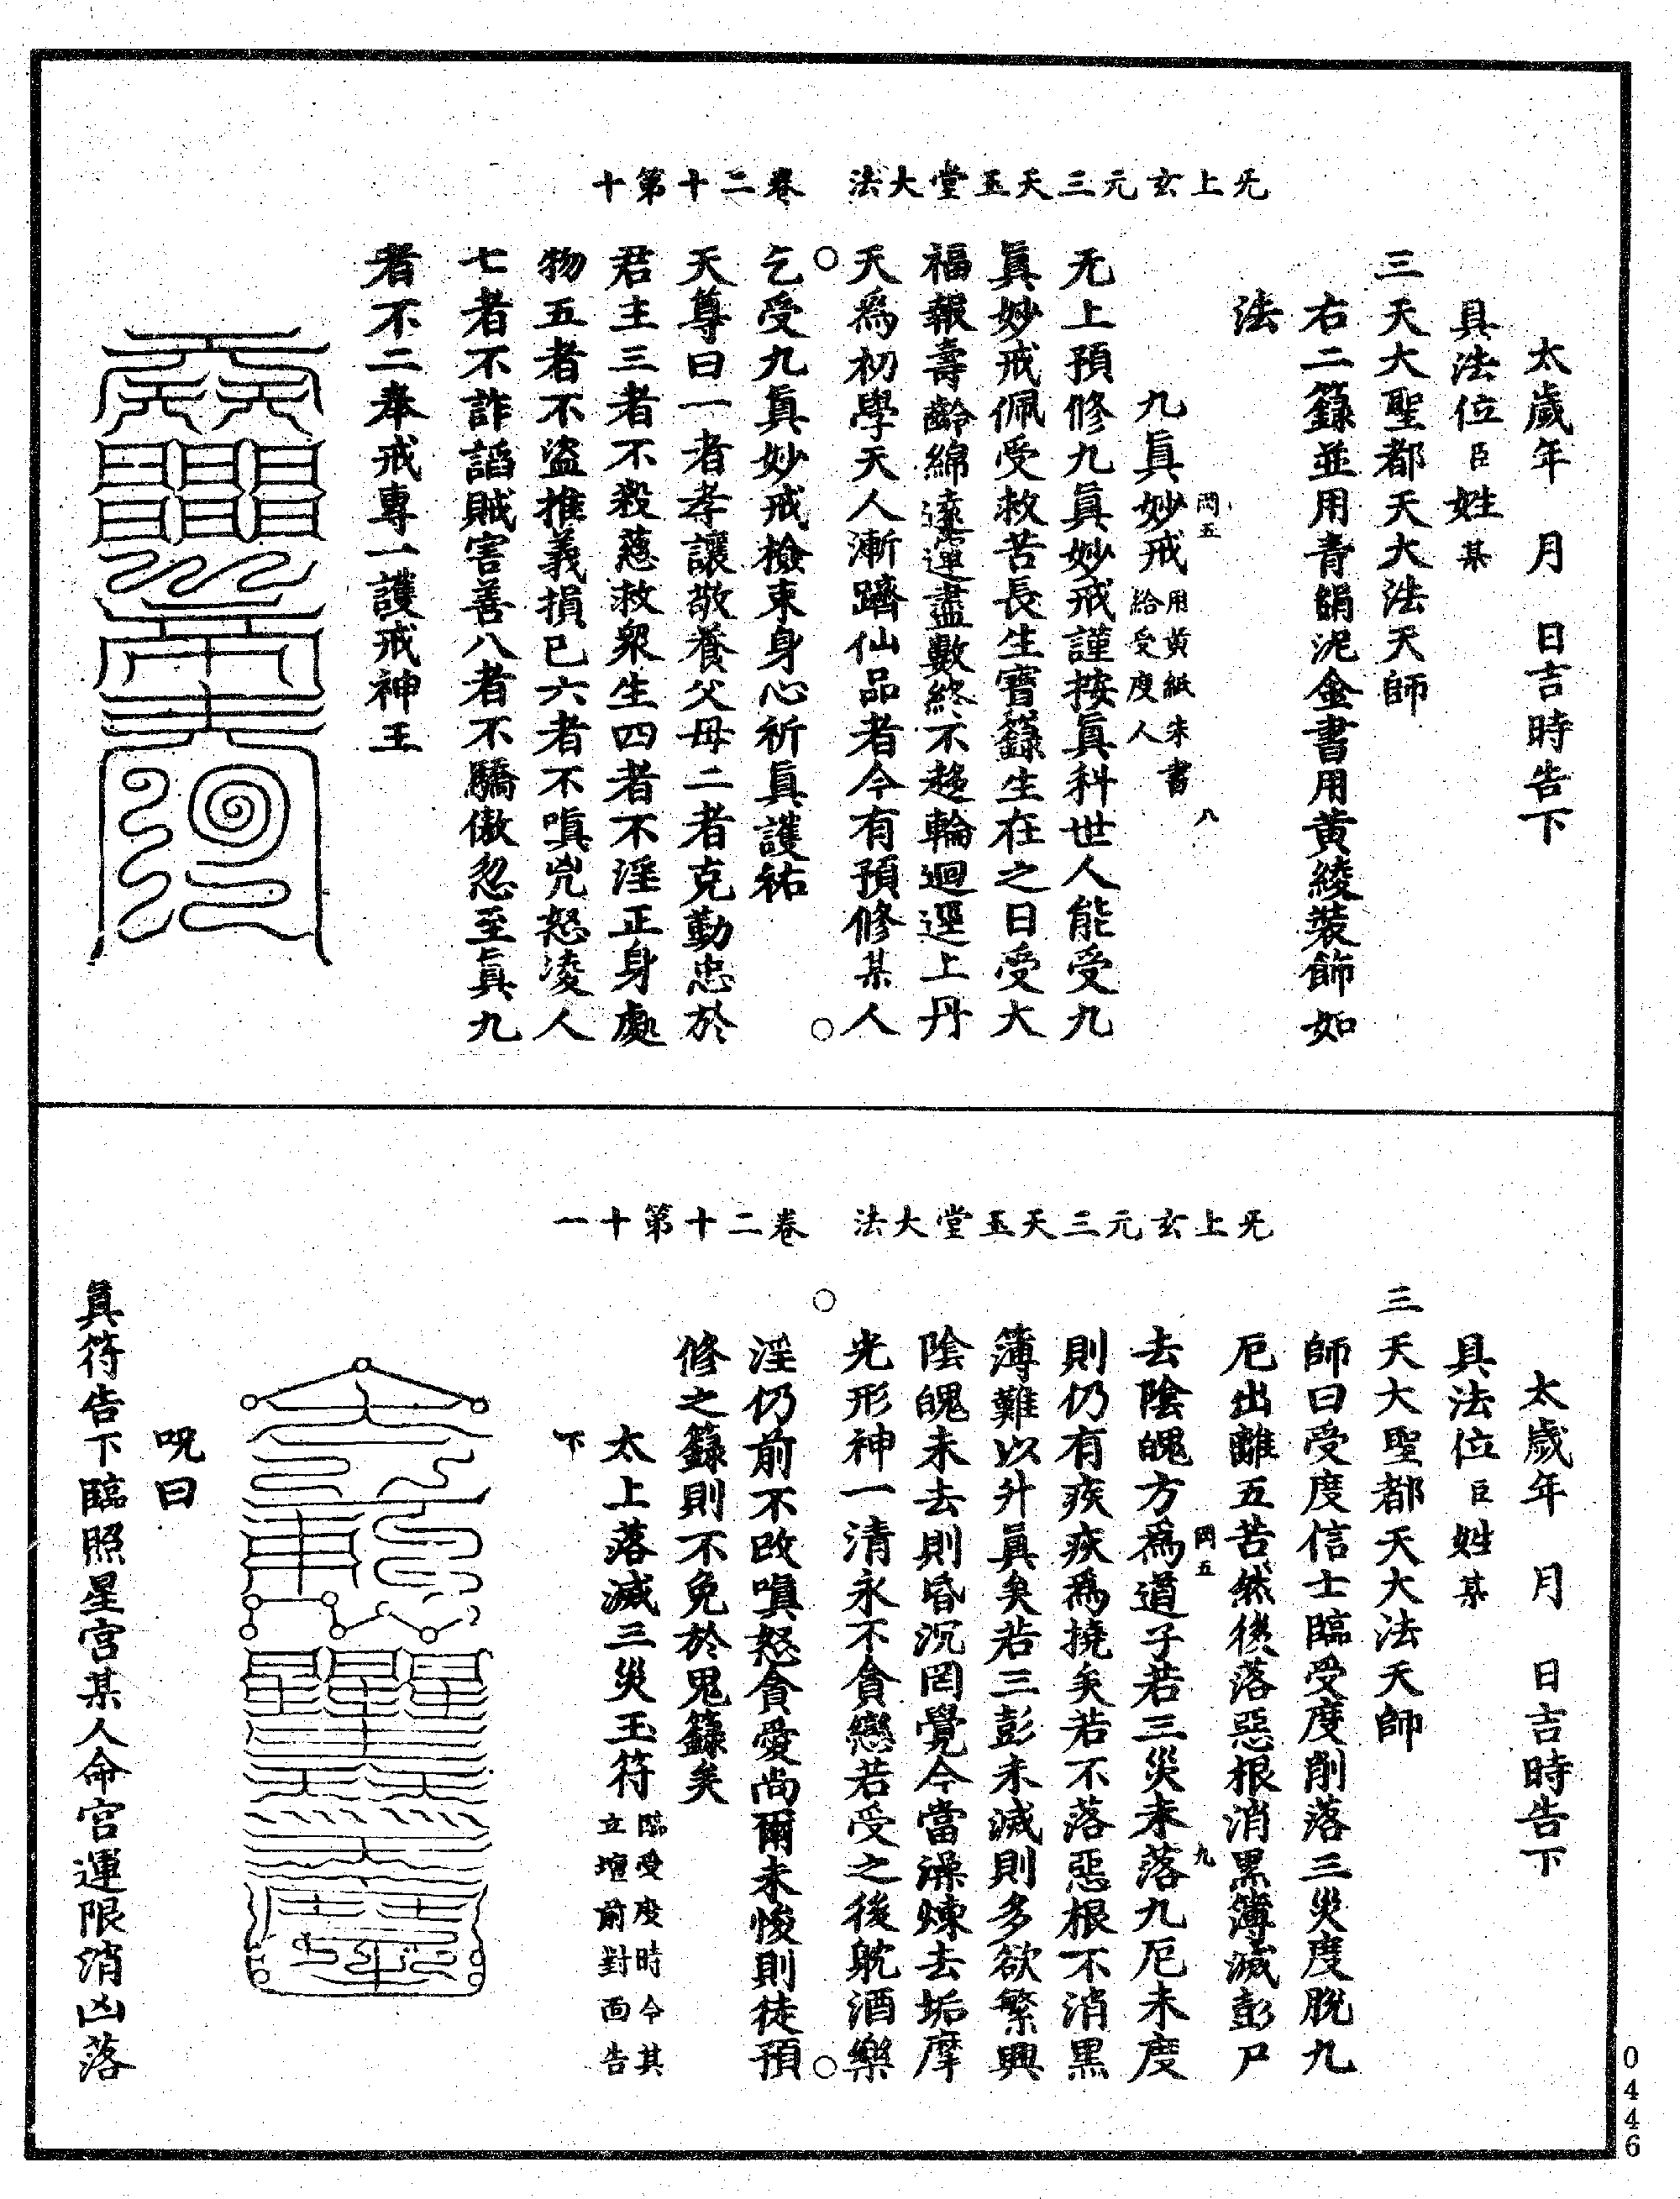 无上玄元三天玉堂大法 卷二十第十
太歲年 月 日吉時告下
具法位臣姓某
三天大聖都天大法天師
右二籙並用青絹泥金書用黃綾裝飾如
法
罔五 八
九眞妙戒用黃紙朱書給受度人
无上預修九眞妙戒謹按眞科世人能受九
眞妙戒佩受救苦長生寶籙生在之日受大
福報壽齡綿遠運盡數終不趍輪迴逕上丹
天爲初學天人漸躋仙品者今有預修某人
乞受九眞妙戒檢束身心祈眞護祐
天尊曰一者孝讓敬養父母二者克勤忠於
君主三者不殺慈救衆生四者不淫正身處
物五者不盜推義損己六者不嗔兇怒凌人
七者不詐謟賊害善八者不驕傲忽至眞九
者不二奉戒專一護戒神王
无上玄元三天玉堂大法 卷二十第十一
太歲年 月 日吉時告下
具法位臣姓某
三天大聖都天大法天師
師曰受度信士臨受度削落三災度脫九
厄出離五苦然後落惡根消黑簿滅彭尸
罔五 九
去陰魄方爲道子若三災未落九厄未度
則仍有疾疢爲撓矣若不落惡根不消黑
簿難以升眞矣若三彭未滅則多欲繁興
陰魄未去則昏沉罔覺今當澡煉去垢摩
光形神一清永不貪戀若受之後躭酒樂
淫仍前不改嗔怒貪愛尚爾未悛則徒預
修之籙則不免於鬼籙矣
太上落滅三災玉符臨受度時令其立壇前對面告
下
呪曰
眞符告下臨照星宮某人命宮運限消凶落
0446